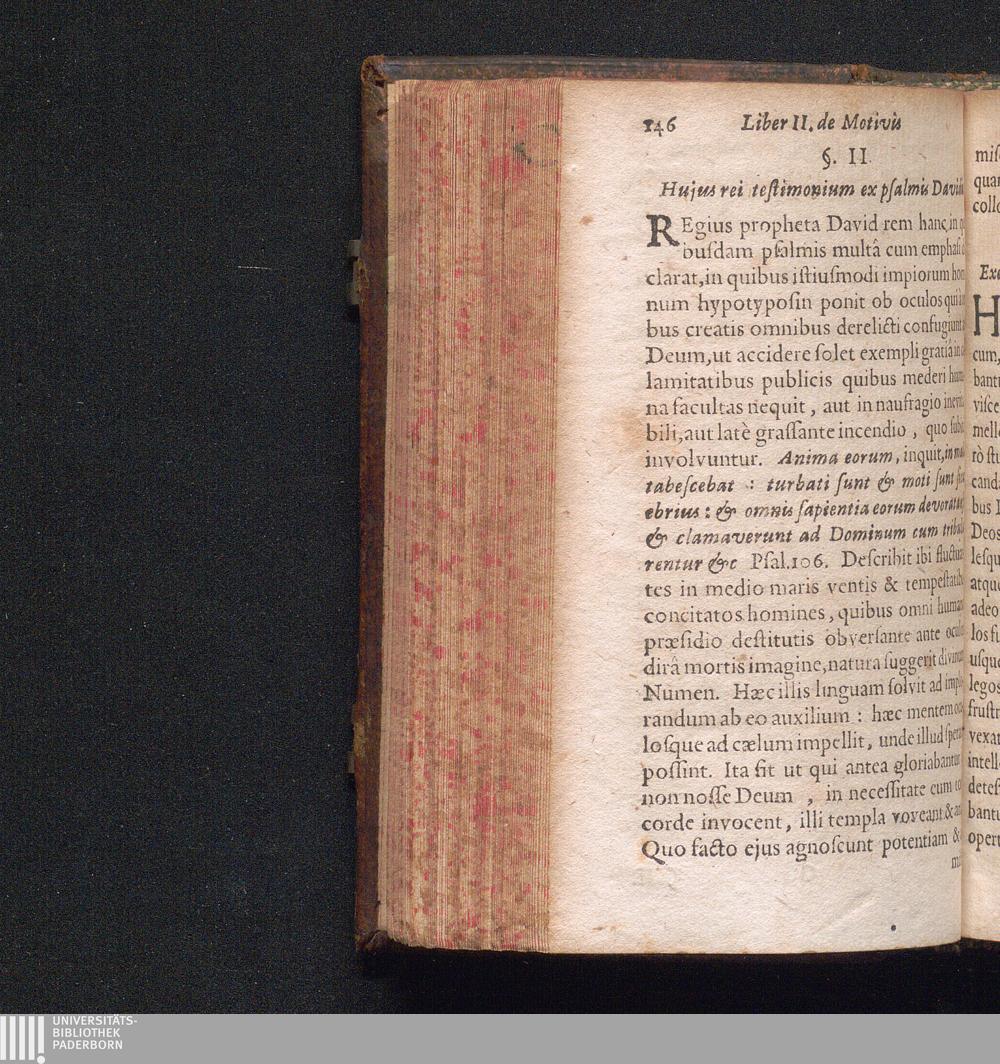 146 Liber II. de Motivis
§. II
Hujus rei teſtimonium ex pſalmis
REgius propheta David rem hanc in
buſdam pſalmis multâ cum
clarat, in quibus iſtiuſmodi impiorum
num hypotypoſin ponit ob oculos
bus creatis omnibus derelicti confugiunt
Deum, ut accidere ſolet exempli gratiâ in
lamitatibus publicis quibus mederi
na facultas nequit, aut in naufragio
bili, aut latè graſſante incendio, quo
involvuntur. Anima eorum, inquit, in
tabeſcebat : turbati ſunt & moti ſunt
ebrius : & omnis ſapientia eorum
& clamaverunt ad Dominum cum
rentur &c Pſal. 106. Deſcribit ibi
tes in medio maris ventis &
concitatos homines, quibus omni
præſidio deſtitutis obverſante ante
dirâ mortis imagine, natura ſuggerit
Numen. Hæc illis linguam ſolvit ad
randum ab eo auxilium : hæc mentem
loſque ad cælum impellit, unde illud
poſſint. Ita fit ut qui antea gloriabantur
non noſſe Deum , in neceſſitate eum
corde invocent, illi templa voveant &
Quo facto ejus agnoſcunt potentiam &
miſ
quan
collo
Exe
H
cum,
bant
viſce
mell
rò ſtu
cand
bus
Deos
leſqu
atque
adeo
los ſu
uſque
legos
fruſtr
vexa
intell
deteſ
bantu
opert
UNIVERSITÄTS-
BIBLIOTHEK
PADERBORN